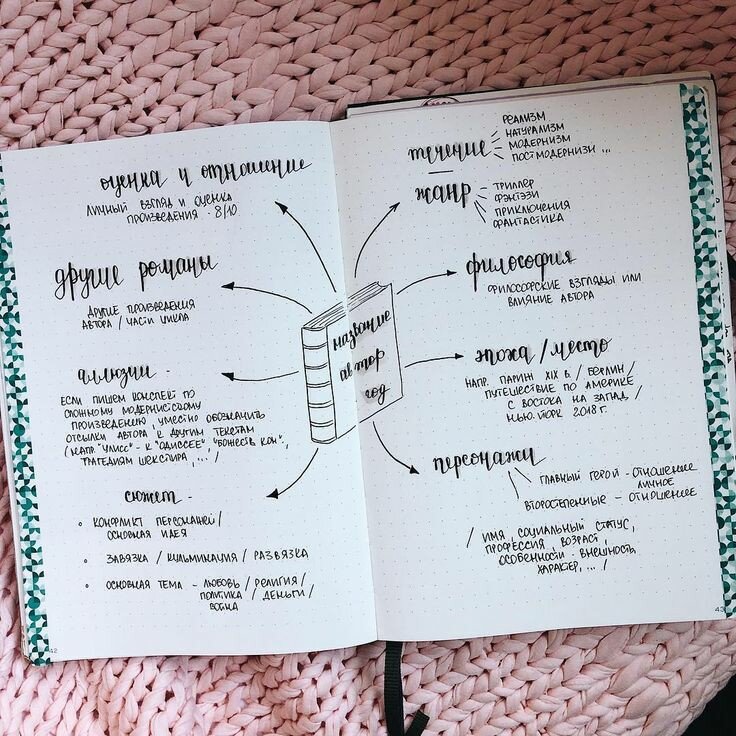 оценка и отношение
личный взгляд и оценка
произведения - 8/10
другие романы
другие произведения
автора / части цикла
аллюзии -
если пишем конспект по
сложному модернистскому
произведению, уместно обозначить
отсылки автора к другим текстам
(напр. "Улисс" - к "Одиссее", "Божеств. ком",
трагедиям Шекспира, ... /
сюжет -
• конфликт персонажей /
основная идея
• завязка / кульминация / развязка
• основная тема - любовь / религия /
политика / деньги /
война
42
название
автор
год
течение
реализм
натурализм
модернизм
постмодернизм ...
жанр
триллер
фэнтэзи
приключения
фантастика
философия
философские взгляды или
влияние автора
эпоха / место
напр. Париж XIX в. / Берлин /
путешествие по Америке
с востока на запад /
Нью-Йорк 2018 г.
персонажи
главный герой - отношение
личное
второстепенные - отношение
/ имя, социальный статус,
профессия, возраст,
особенности - внешность,
характер, ... /
43